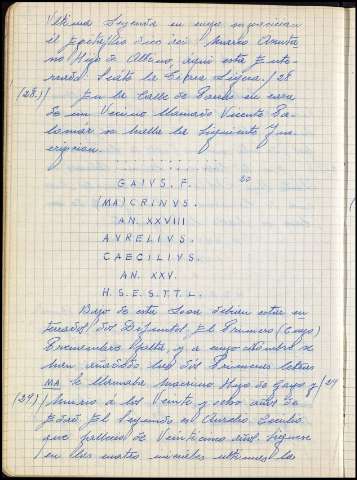 Ultima Segunda en cuyo
el Epitafio dice asi Marco Annita
no Hijo de Albino, aqui está Ente-
rrado. Seate la tierra Ligera. / 28
(28.)/ En la Calle de Pardo en casa
de un Vecino llamado Vicente Pa-
lomar se halla la siguiente Ins-
cripcion.
GAIVS. F. 30
(MA)CRINVS.
AN. XXVIII
AVRELIVS.
CAECILIVS.
AN. XXV.
H. S. E. S. T. T. L.
Bajo de esta Losa debian estar en
terrados dos Difuntos. El Primero (Cayo)
falta, y a cuyo nombre se
han añadido las dos Primeras letras
MA se llamaba Macrino Hijo de Gayo y / 29
(29) / Murio a los Veinte y ocho años de
Edad. El Segundo es Aurelio Cecilio
que fallecio de Veinticinco años. Siguense
en las cuatro iniciales ultimas la